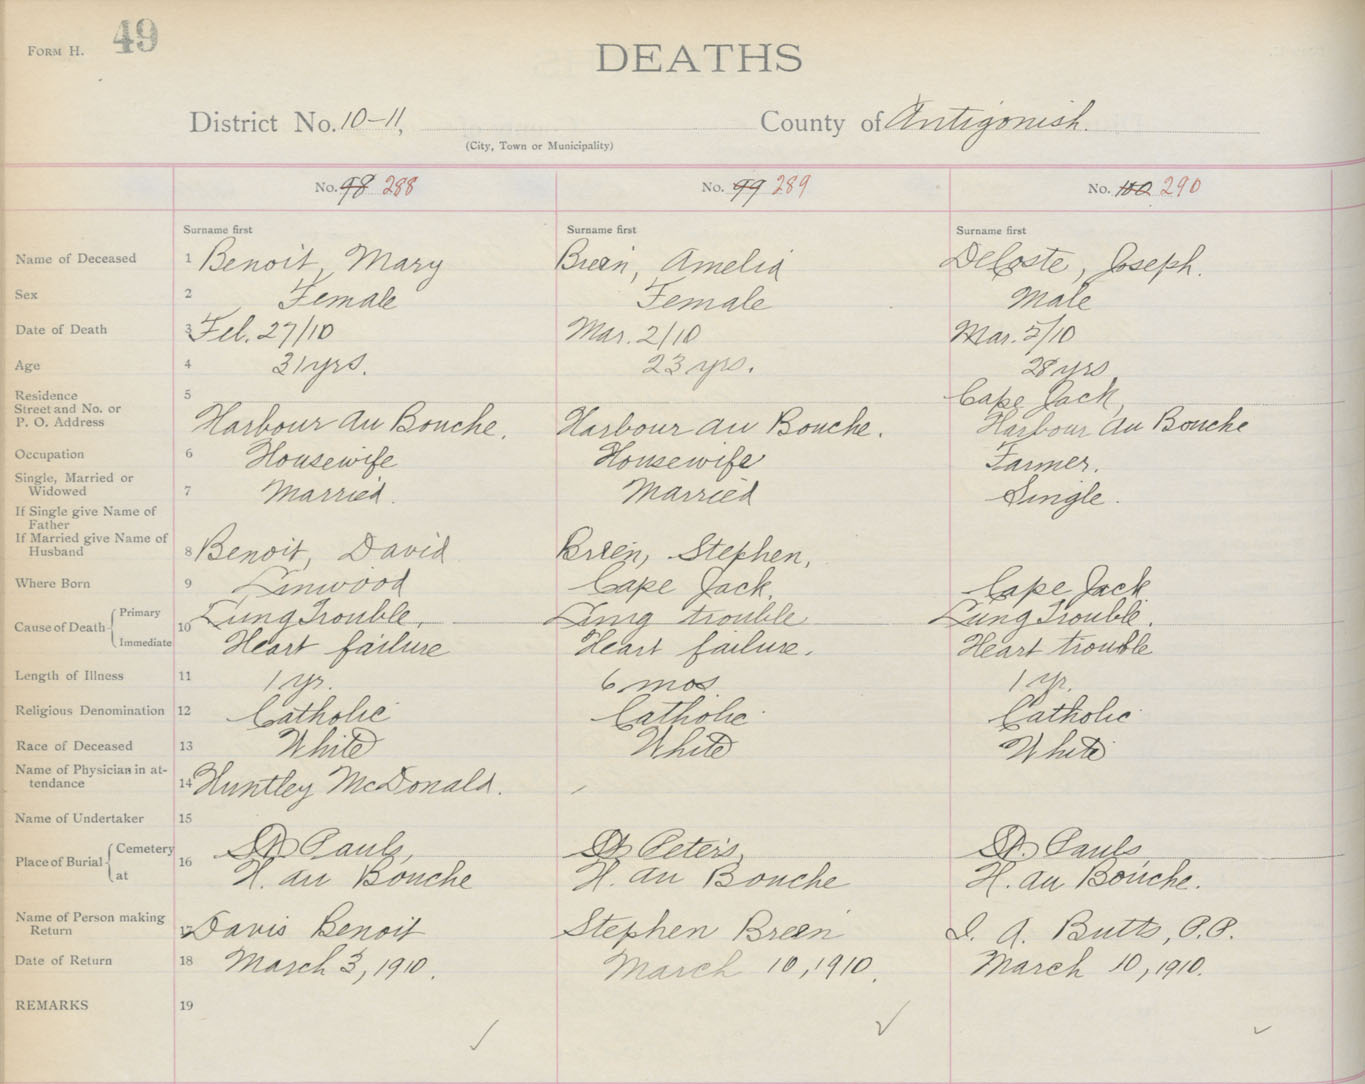 FORM H. 49
DEATHS
District No. 10-11, County of Antigonish.
(City, Town or Municipality)
No. 98 288 No. 99 289 No. 100 290
Surname first Surname first Surname first
Name of Deceased 1 Benoit, Mary Breen, Amelia DeCoste, Joseph.
Sex 2 Female Female Male
Date of Death 3 Feb. 27/10 Mar. 2/10 Mar. 5/10
Age 4 31 yrs. 23 yrs. 28 yrs
Residence 5 Cape Jack,
Street and No. or
P. O. Address Harbour au Bouche. Harbour au Bouche. Harbour au Bouche
Occupation 6 Housewife Housewife Farmer.
Single, Married or
Widowed 7 Married. Married Single.
If Single give Name of
Father
If Married give Name of
Husband 8 Benoit, David Breen, Stephen,
Where Born 9 Linwood Cape Jack. Cape Jack
Cause of Death Primary 10 Lung Trouble, Lung trouble Lung Trouble.
Immediate Heart failure Heart failure. Heart trouble
Length of Illness 11 1 yr. 6 mos. 1 yr.
Religious Denomination 12 Catholic Catholic Catholic
Race of Deceased 13 White White White
Name of Physician in at-
tendance 14 Huntley McDonald.
Name of Undertaker 15
Place of Burial Cemetery 16 St Pauls, St Peter's, St. Pauls
at H. au Bouche H. au Bouche H. au Bouche.
Name of Person making
Return 17 Davis Benoit Stephen Breen J. A. Butts, P.P.
Date of Return 18 March 3, 1910. March 10, 1910. March 10, 1910.
REMARKS 19